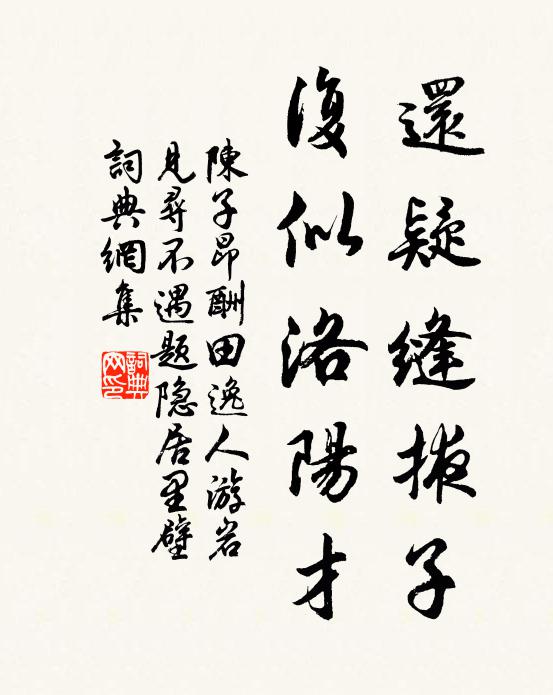 還疑縫掖子
復似洛陽才
陳子昂酬田逸人游岩
見尋不遇題隐居里壁
詞典網集
詞典網印